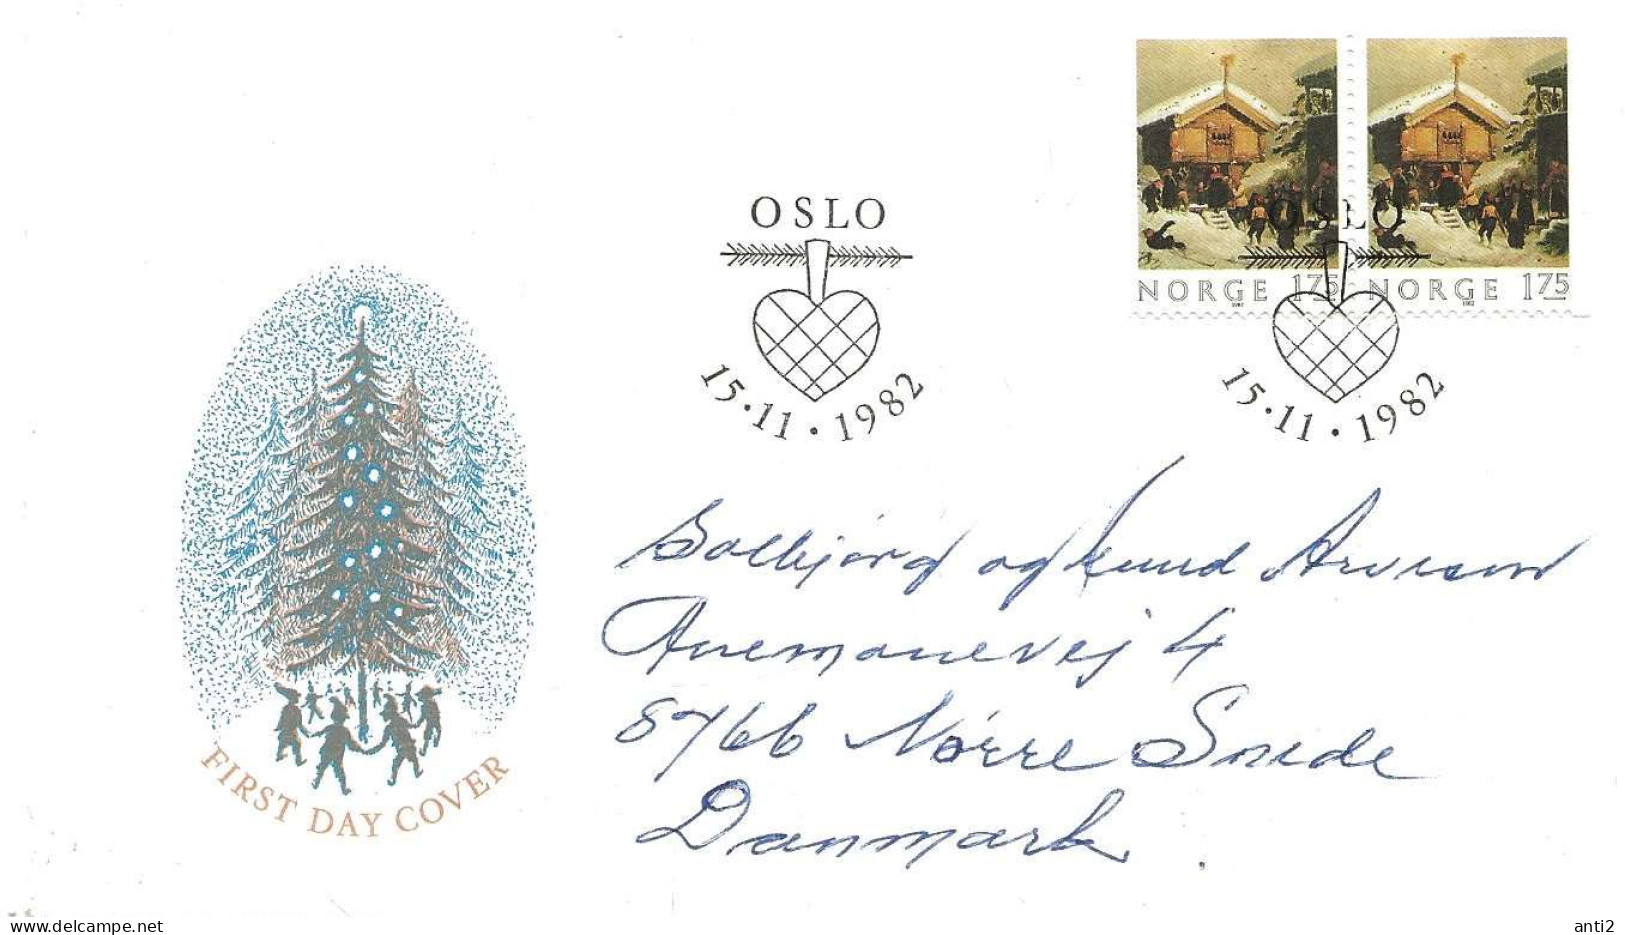 NORGE 175
1982
NORGE 175
1982
OSLO
15.11.1982
OSLO
15.11.1982
Solbjørg og Knud Arvesen
Anemonevej 4
8766 Nørre Snede
Danmark.
FIRST DAY COVER
www.delcampe.net
anti2